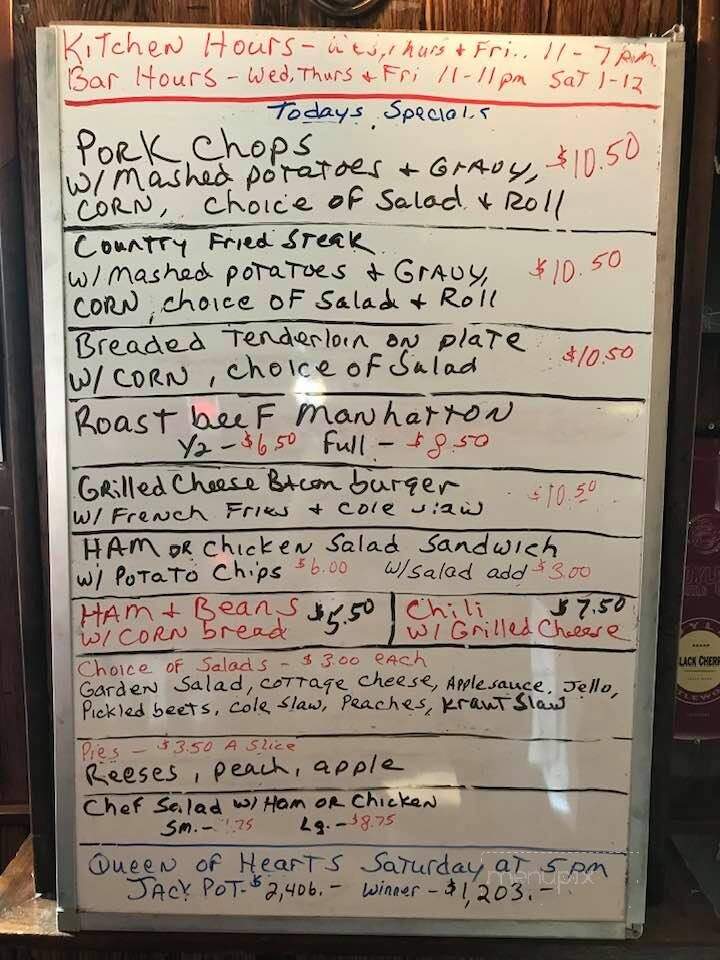 Kitchen Hours - Wed, Thurs + Fri.. 11 - 7 p.m.
Bar Hours - Wed, Thurs + Fri 11-11 pm Sat 1-12
Todays Specials
Pork Chops
w/ Mashed potatoes + Gravy, $10.50
Corn, choice of Salad + Roll
Country Fried Steak
w/ mashed potatoes + Gravy, $10.50
Corn, choice of Salad + Roll
Breaded Tenderloin on plate
w/ Corn, choice of Salad $10.50
Roast beef Manhatton
1/2 - $6.50 Full - $8.50
Grilled Cheese Bacon burger
w/ French Fries + Cole slaw $10.50
Ham or Chicken Salad Sandwich
w/ Potato Chips $6.00 w/salad add $3.00
Ham + Beans $5.50
w/ Corn bread
Chili $7.50
w/ Grilled Cheese
Choice of Salads - $3.00 each
Garden Salad, Cottage Cheese, Applesauce, Jello,
Pickled beets, Cole Slaw, Peaches, Kraut Slaw
Pies - $3.50 A Slice
Reeses, peach, apple
Chef Salad w/ Ham or Chicken
Sm. - Lg. - $8.75
Queen of Hearts Saturday at 5pm
Jack Pot - $2,406.- Winner - $1,203.-
menupix